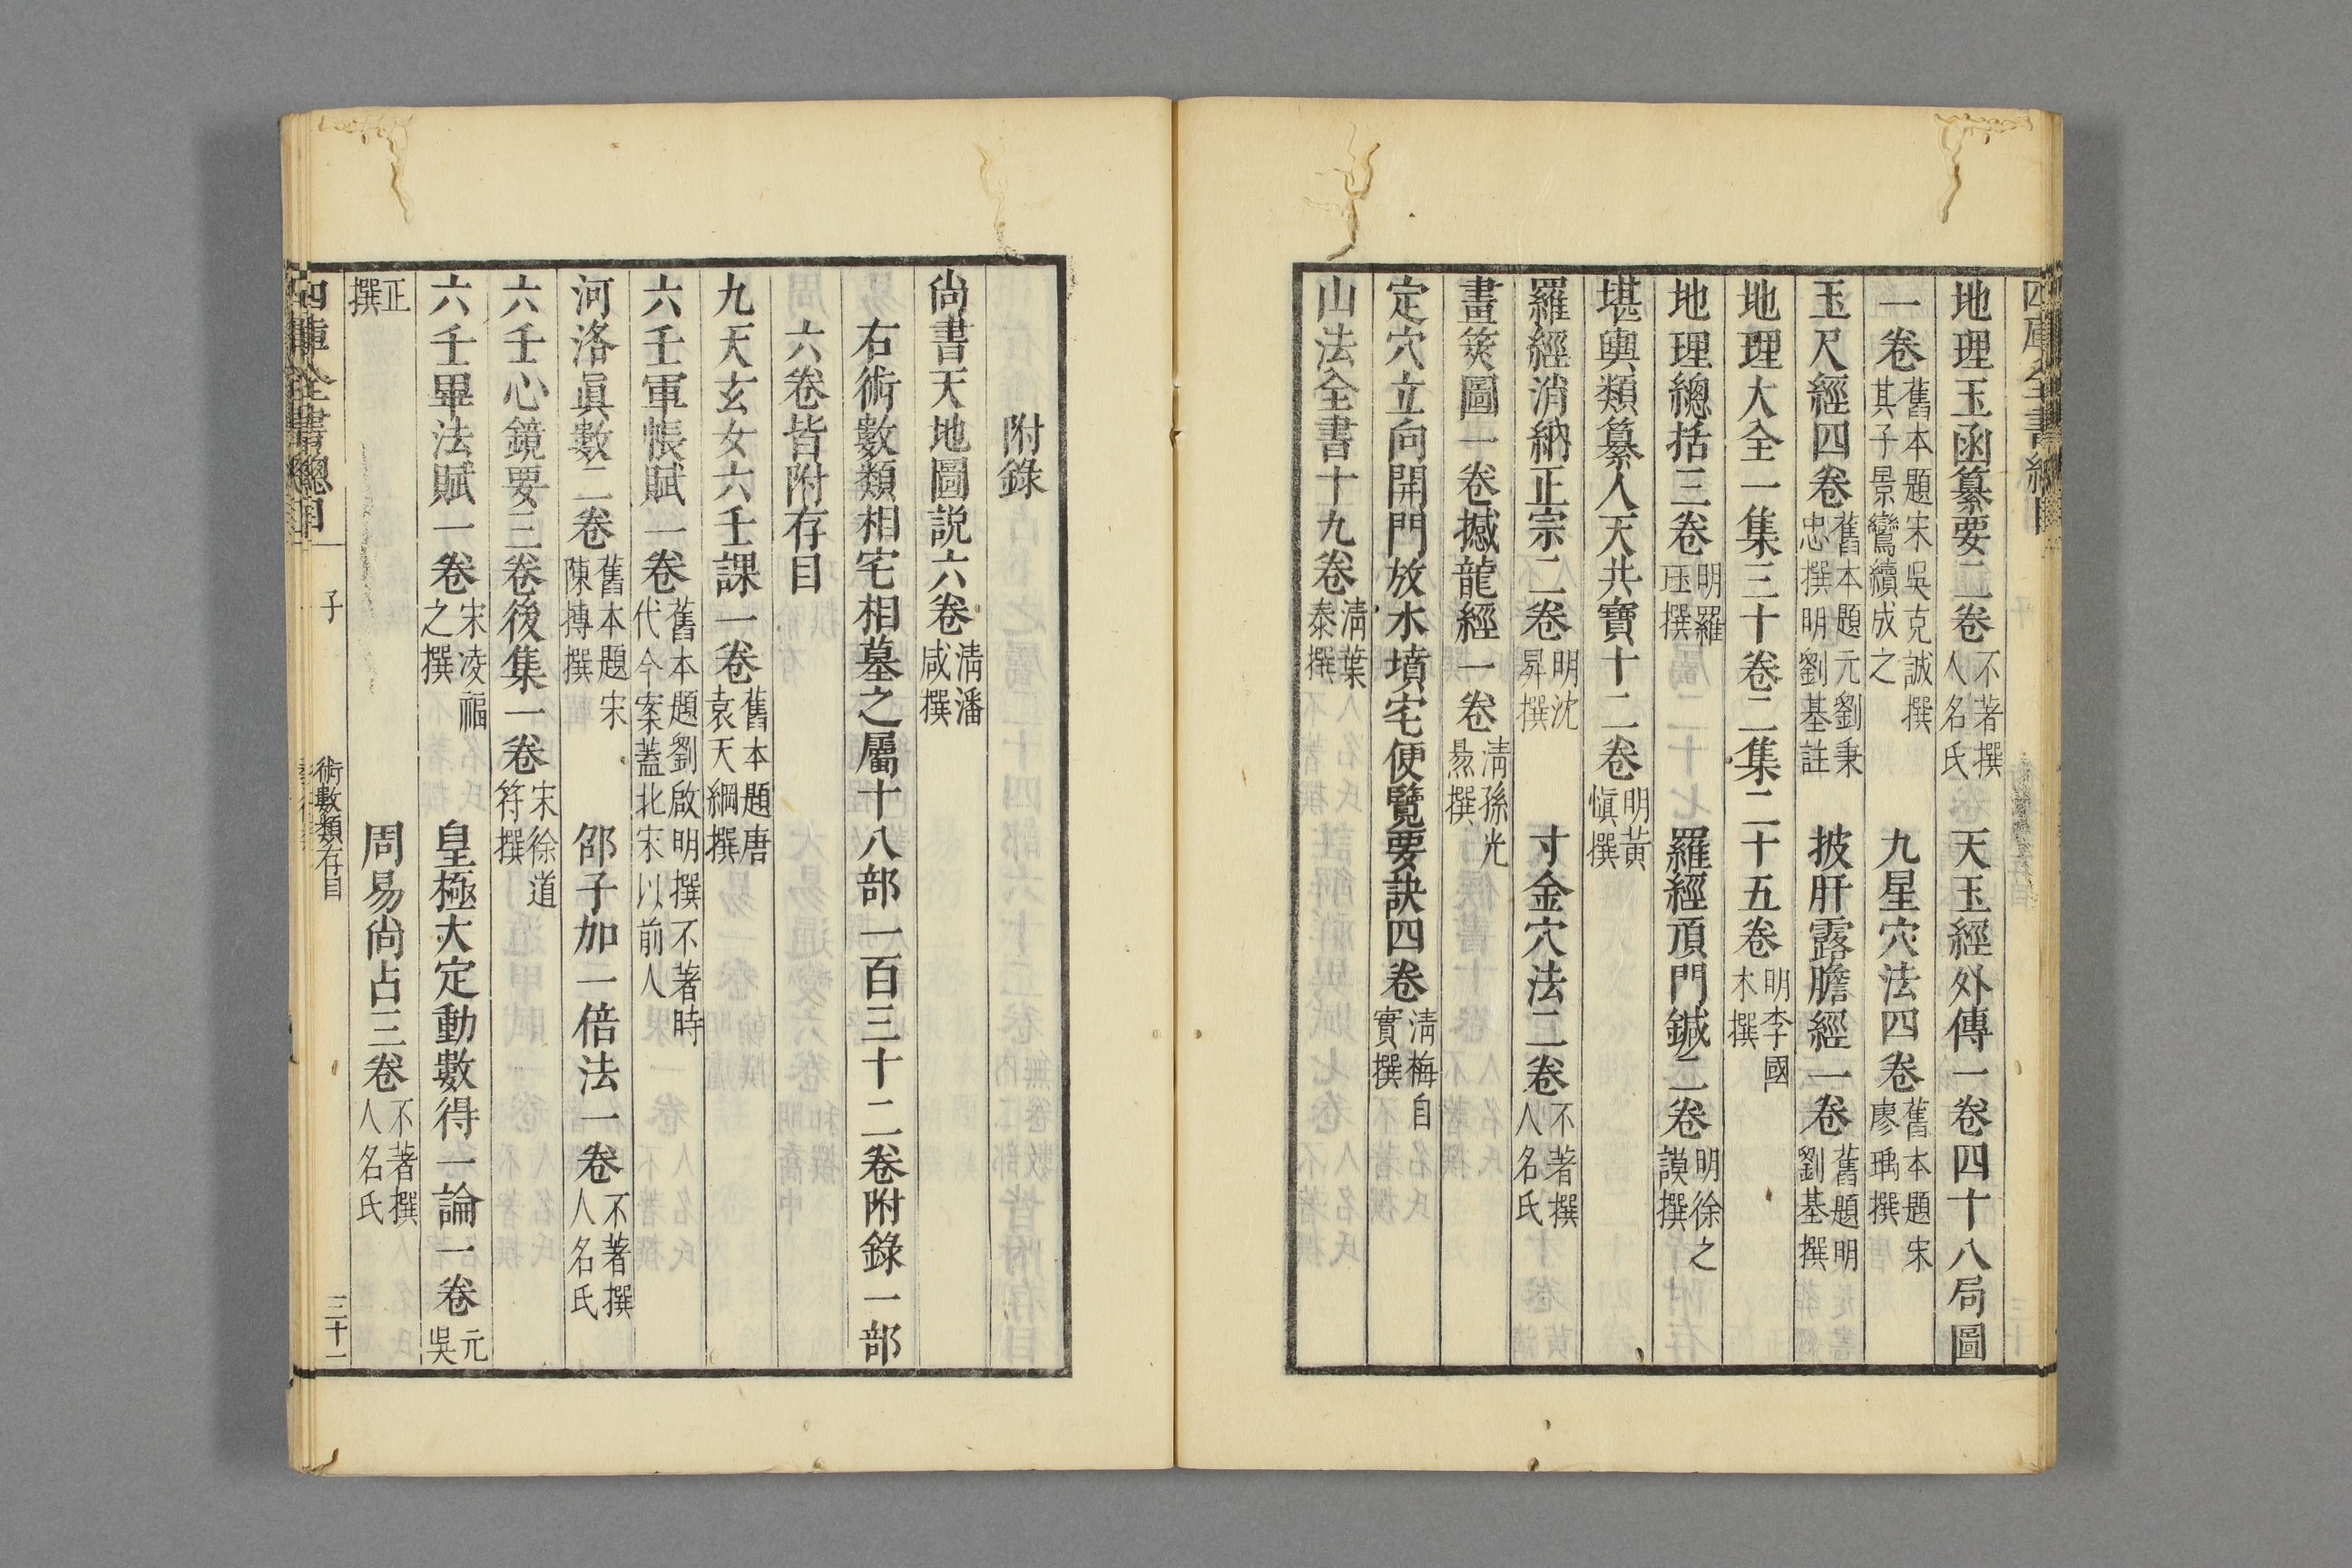 地理玉函纂要二卷不著撰人名氏 天玉經外傳一卷四十八局圖
一卷舊本題宋吳克誠撰其子景鸞續成之 九星穴法四卷舊本題宋廖瑀撰
玉尺經四卷舊本題元劉秉忠撰明劉基註 披肝露膽經一卷舊題明劉基撰
地理大全一集三十卷二集二十五卷明李國木撰
地理總括三卷明羅珏撰 羅經頂門鍼二卷明徐之謨撰
堪輿類纂人天共寶十二卷明黃愼撰
羅經消納正宗二卷明沈昇撰 寸金穴法二卷不著撰人名氏
畫筴圖一卷撼龍經一卷淸孫光㷼撰
定穴立向開門放水墳宅便覽要訣四卷淸梅自實撰
山法全書十九卷淸葉泰撰
附錄
尙書天地圖説六卷淸潘咸撰
右術數類相宅相墓之屬十八部一百三十二卷附錄一部
六卷皆附存目
九天玄女六壬課一卷舊本題唐袁天綱撰
六壬軍帳賦一卷舊本題劉啟明撰不著時代今案蓋北宋以前人
河洛眞數二卷舊本題宋陳摶撰 邵子加一倍法一卷不著撰人名氏
六壬心鏡要三卷後集一卷宋徐道符撰
六壬畢法賦一卷宋凌福之撰 皇極大定動數得一論一卷元吳
正撰 周易尙占三卷不著撰人名氏
四庫全書總目 子 術數類存目 三十一